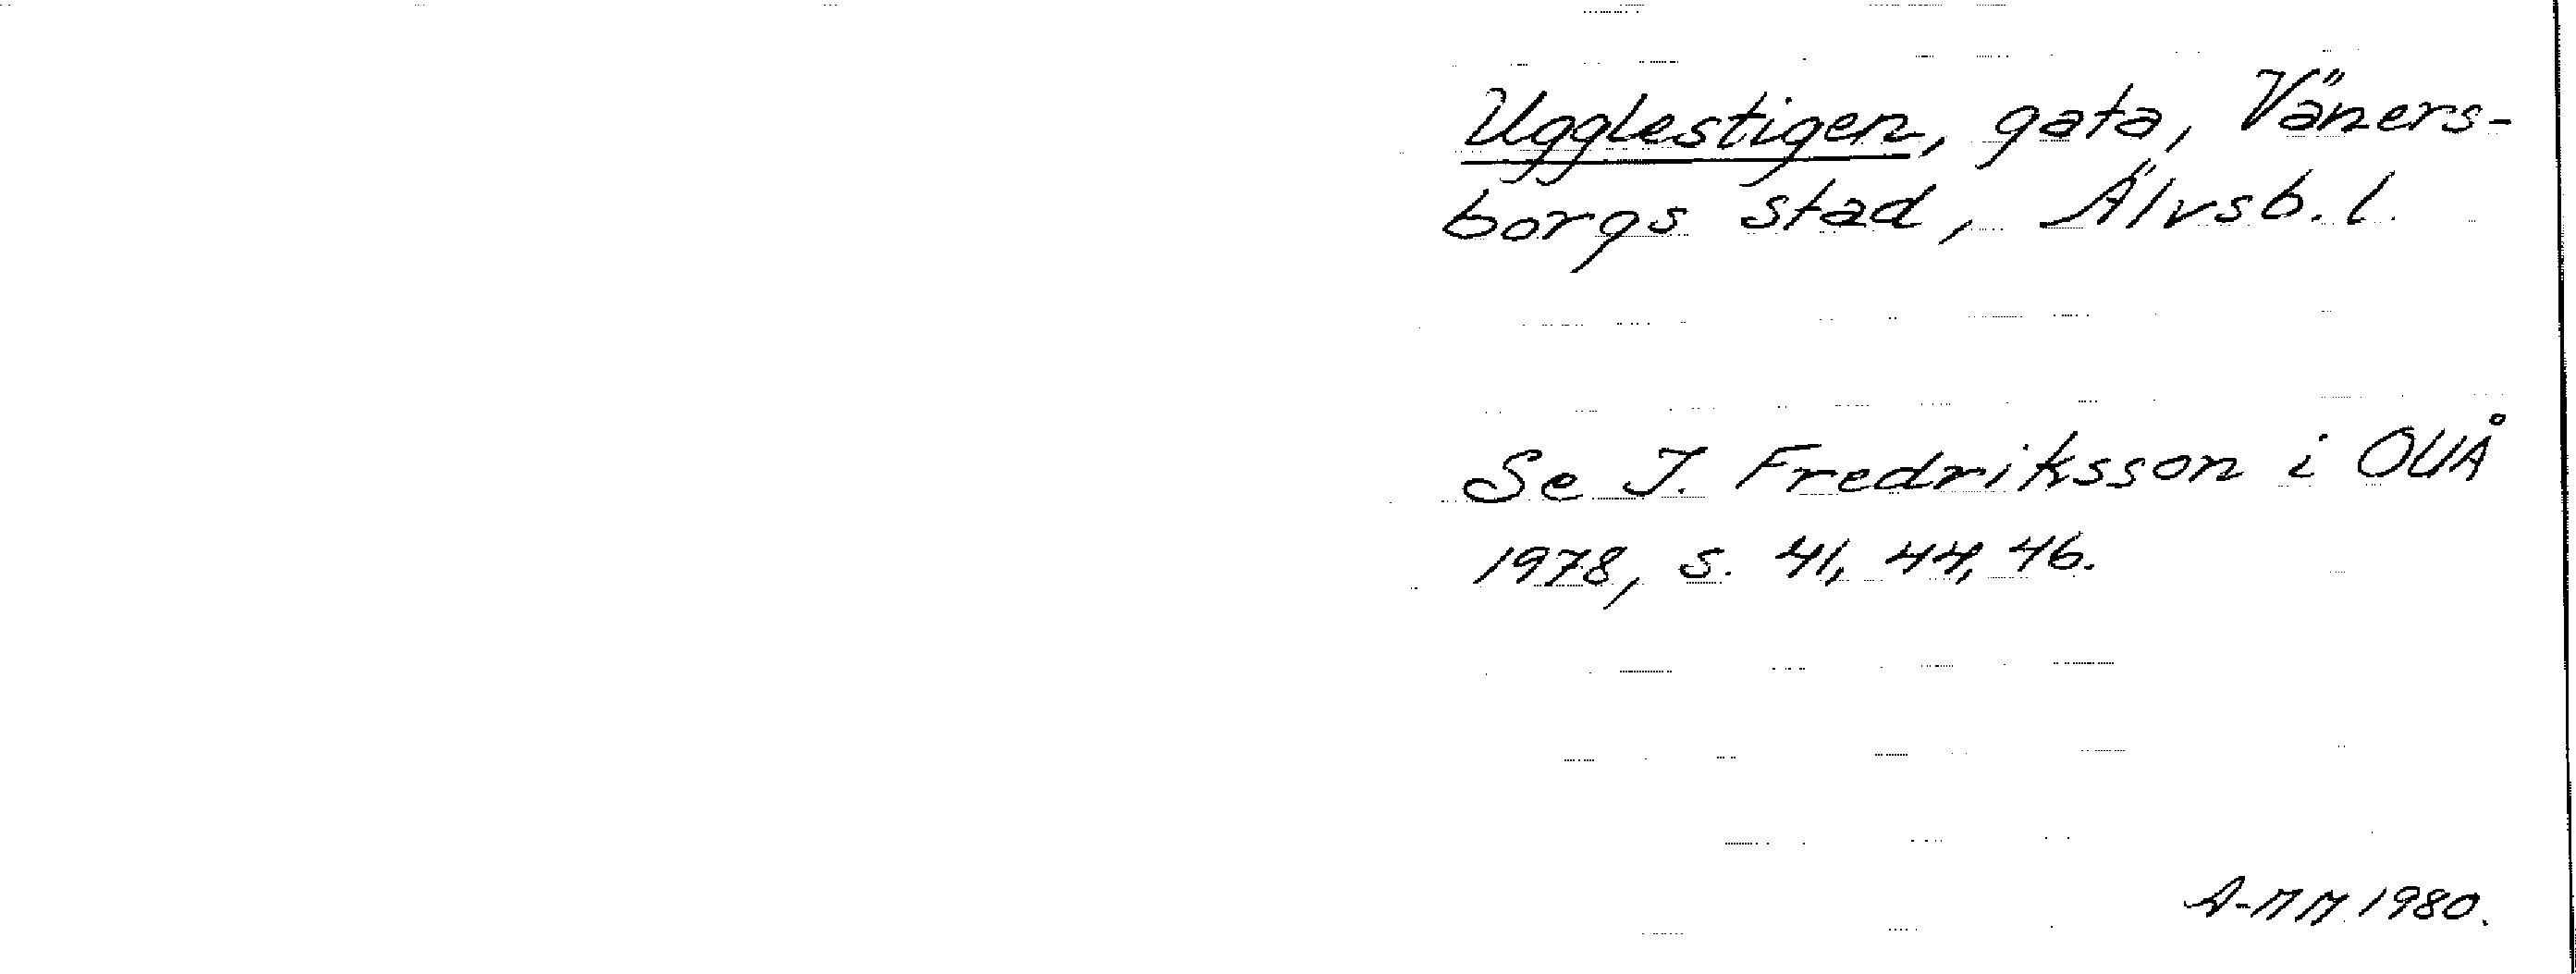 Ugglestigen, gata, Väners-
borgs stad, Älvsb. l.
Se I. Fredriksson i OUÅ
1978, s. 41, 44, 46.
A-MM 1980.